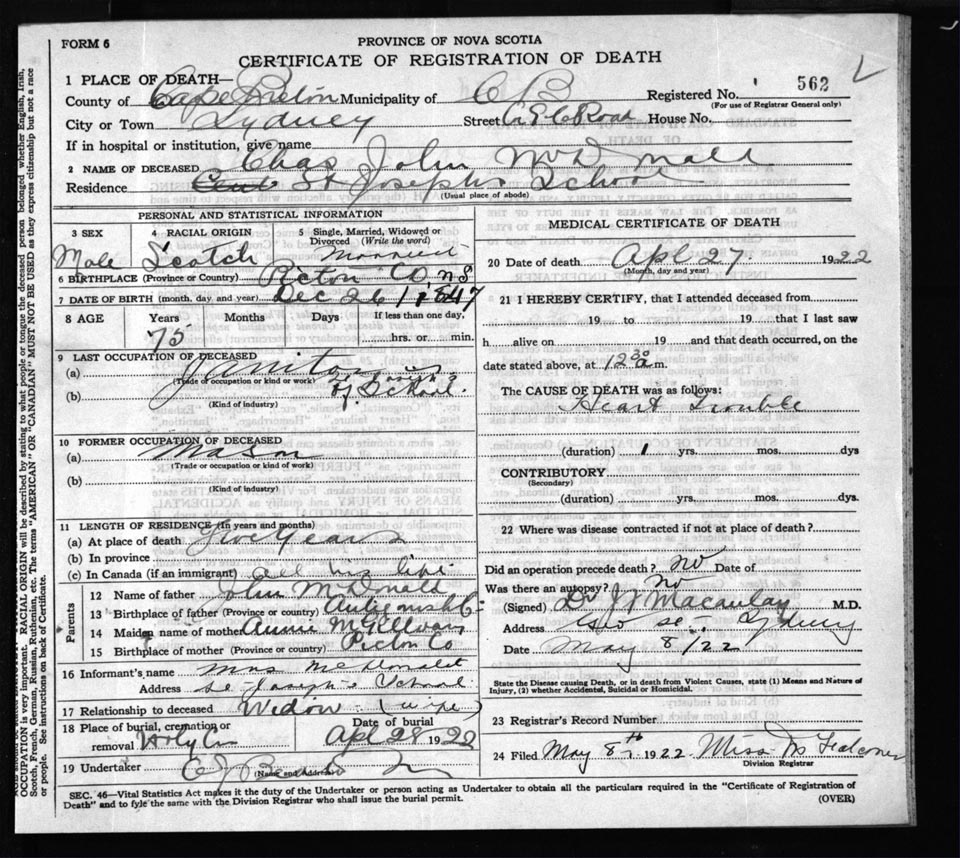 FORM 6
PROVINCE OF NOVA SCOTIA
CERTIFICATE OF REGISTRATION OF DEATH
1 PLACE OF DEATH—
562
County of Cape Breton Municipality of C B Registered No.
(For use of Registrar General only)
City or Town Sydney Street Road House No.
If in hospital or institution, give name
2 NAME OF DECEASED Chas John McDonald
Residence St Josephs School
(Usual place of abode)
PERSONAL AND STATISTICAL INFORMATION
3 SEX Male
4 RACIAL ORIGIN Scotch
5 Single, Married, Widowed or Divorced (Write the word) Married
6 BIRTHPLACE (Province or Country) Picton Co N S
7 DATE OF BIRTH (month, day, and year) Dec 26 1847
8 AGE Years Months Days If less than one day,
75 hrs. or min.
9 LAST OCCUPATION OF DECEASED
(a) Janitor
(Trade or occupation or kind or work)
(b) School.
(Kind of industry)
10 FORMER OCCUPATION OF DECEASED
(a) Mason
(Trade or occupation or kind of work)
(b)
(Kind of industry)
11 LENGTH OF RESIDENCE (In years and months)
(a) At place of death Five Years
(b) In province
(c) In Canada (if an immigrant) all his life
Parents
12 Name of father John McDonald
13 Birthplace of father (Province or country) Antigonish Co
14 Maiden name of mother Annie
15 Birthplace of mother (Province or country) Picton Co
16 Informant's name Mrs McDonald
Address St Joseph's School
17 Relationship to deceased Widow (wife)
18 Place of burial, cremation or removal Holy C
Date of burial Apl 28 1922
19 Undertaker
(Name and Address)
MEDICAL CERTIFICATE OF DEATH
20 Date of death Apl 27 1922
(Month, day and year)
21 I HEREBY CERTIFY, that I attended deceased from
19 to 19 that I last saw
h alive on 19 and that death occurred, on the
date stated above, at 12 30 a m.
The CAUSE OF DEATH was as follows:
Heart Trouble
(duration) 1 yrs. mos. dys
CONTRIBUTORY
(Secondary)
(duration) yrs. mos. dys.
22 Where was disease contracted if not at place of death?
Did an operation precede death? No Date of
Was there an autopsy? No
(Signed) Dr J J Macaulay M.D.
Address Geo St - Sydney
Date May 8/22
State the Disease causing Death, or in death from Violent Causes, state (1) Means and Nature of
Injury, (2) whether Accidental, Suicidal or Homicidal.
23 Registrar's Record Number
24 Filed May 8th 1922 Miss
Division Registrar
SEC. 46—Vital Statistics Act makes it the duty of the Undertaker or person acting as Undertaker to obtain all the particulars required in the "Certificate of Registration of
Death" and to fyle the same with the Division Registrar who shall issue the burial permit.
(OVER)
OCCUPATION is very important. RACIAL ORIGIN will be described by stating to what people or tongue the deceased person belonged whether English, Irish,
Scotch, French, German, Russian, Ruthenian, etc. The terms "AMERICAN" OR "CANADIAN" MUST NOT BE USED as they express citizenship but not a race
or people. See instructions on back of Certificate.